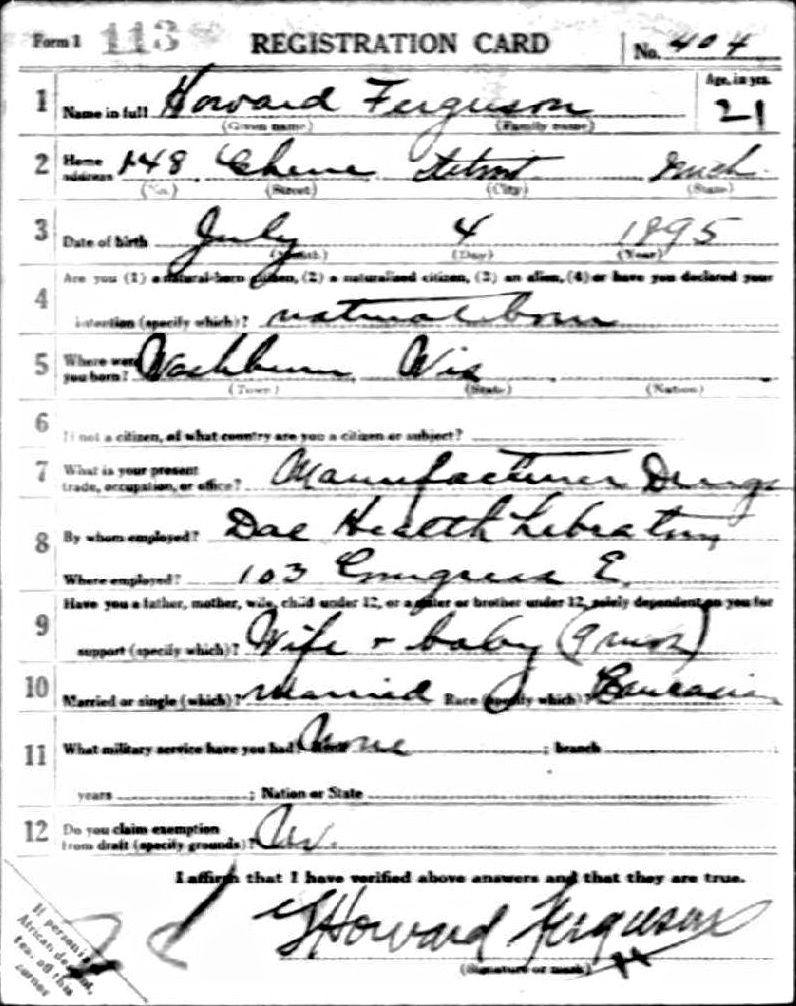 Form 1 113 REGISTRATION CARD No. 404
1 Name in full Howard Ferguson Age, in yrs. 21
(Given name) (Family name)
2 Home address 148 Chene Detroit Mich.
(No.) (Street) (City) (State)
3 Date of birth July 4 1895
(Month) (Day) (Year)
Are you (1) a natural-born citizen, (2) a naturalized citizen, (3) an alien, (4) or have you declared your
4 intention (specify which)? natural born
5 Where were you born? Washburn Wis
(Town) (State) (Nation)
6 If not a citizen, of what country are you a citizen or subject?
7 What is your present trade, occupation, or office? Manufacturer Drugs
8 By whom employed? Dae Health
Where employed? 103 Congress E.
Have you a father, mother, wife, child under 12, or a sister or brother under 12, solely dependent on you for
9 support (specify which)? Wife + baby (9 mos)
10 Married or single (which)? Married Race (specify which)? Caucasian
11 What military service have you had? None ; branch
years ; Nation or State
12 Do you claim exemption from draft (specify grounds)? No.
I affirm that I have verified above answers and that they are true.
Howard Ferguson
(Signature or mark)
If person is
African descent,
tear off this
corner